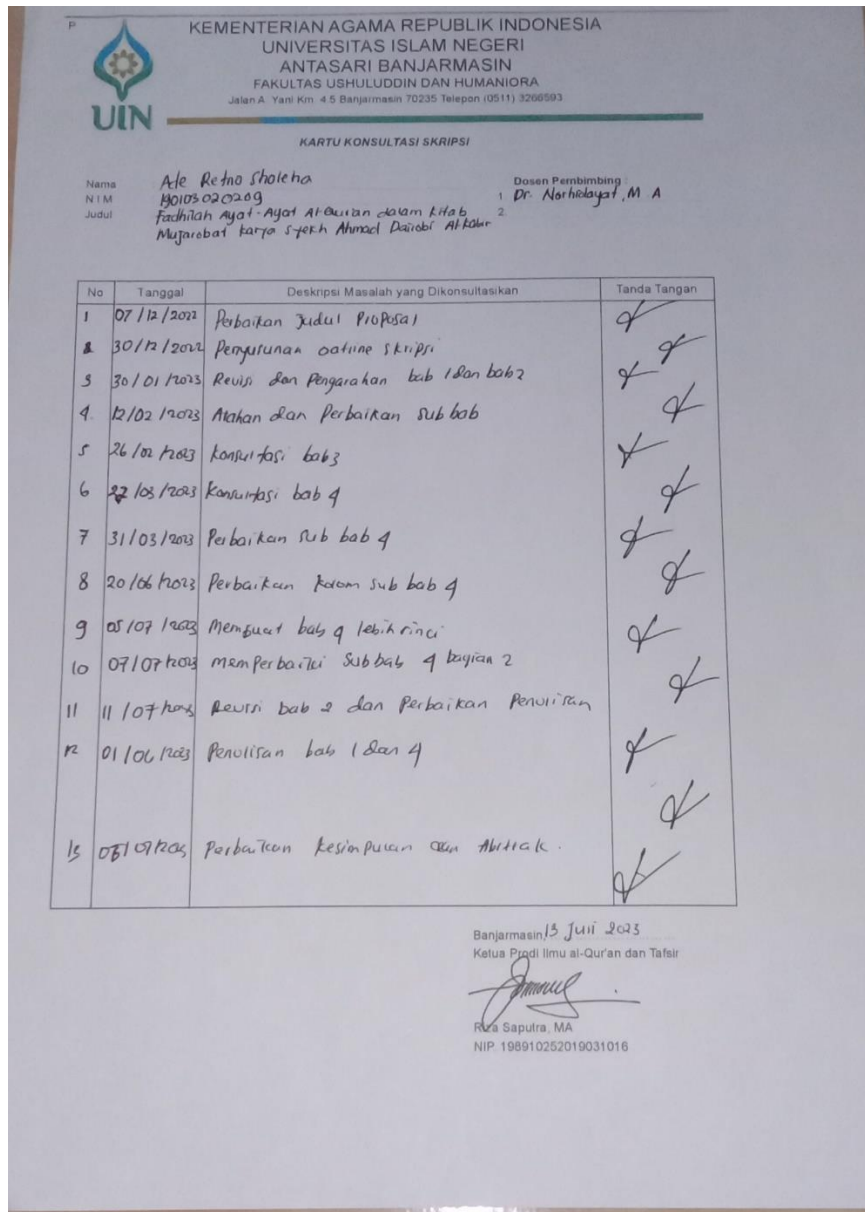 P
KEMENTERIAN AGAMA REPUBLIK INDONESIA
UNIVERSITAS ISLAM NEGERI
ANTASARI BANJARMASIN
FAKULTAS USHULUDDIN DAN HUMANIORA
Jalan A. Yani Km. 4.5 Banjarmasin 70235 Telepon (0511) 3266593
UIN
KARTU KONSULTASI SKRIPSI
Nama Ade Retno Sholeha Dosen Pembimbing :
NIM 190103020209 1 Dr. Norhidayat, M A
Judul Fadhilah Ayat-Ayat Al-Quran dalam kitab 2.
Mujarobat karya Syekh Ahmad Dairobi Al-Kabir
No Tanggal Deskripsi Masalah yang Dikonsultasikan Tanda Tangan
1 07/12/2022 Perbaikan Judul Proposal
2 30/12/2022 Penyusunan outline skripsi
3 30/01/2023 Revisi dan Pengarahan bab 1 dan bab 2
4. 12/02/2023 Arahan dan Perbaikan sub bab
5 26/02/2023 konsultasi bab 3
6 27/03/2023 Konsultasi bab 4
7 31/03/2023 Perbaikan sub bab 4
8 20/06/2023 Perbaikan kolom sub bab 4
9 05/07/2023 Membuat bab 4 lebih rinci
10 07/07/2023 memperbaiki Sub bab 4 bagian 2
11 11/07/2023 Revisi bab 2 dan Perbaikan Penulisan
12 01/06/2023 Penulisan bab 1 dan 4
13 Perbaikan kesimpulan dan Abstrak.
Banjarmasin, 13 Juli 2023
Ketua Prodi Ilmu al-Qur'an dan Tafsir
Riza Saputra, MA
NIP. 198910252019031016